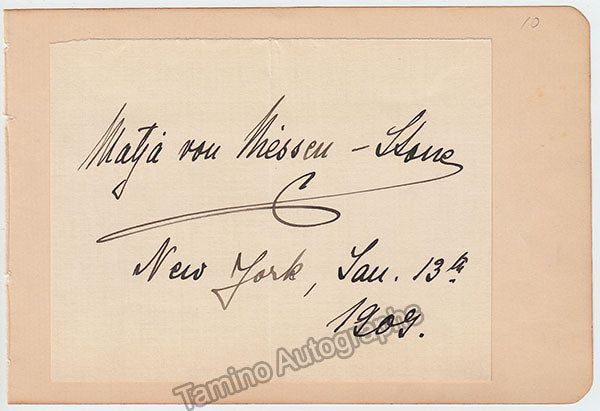 10
Matja von Niessen - Stone
New York, Jan. 13th
1909.
Tamino Autographs